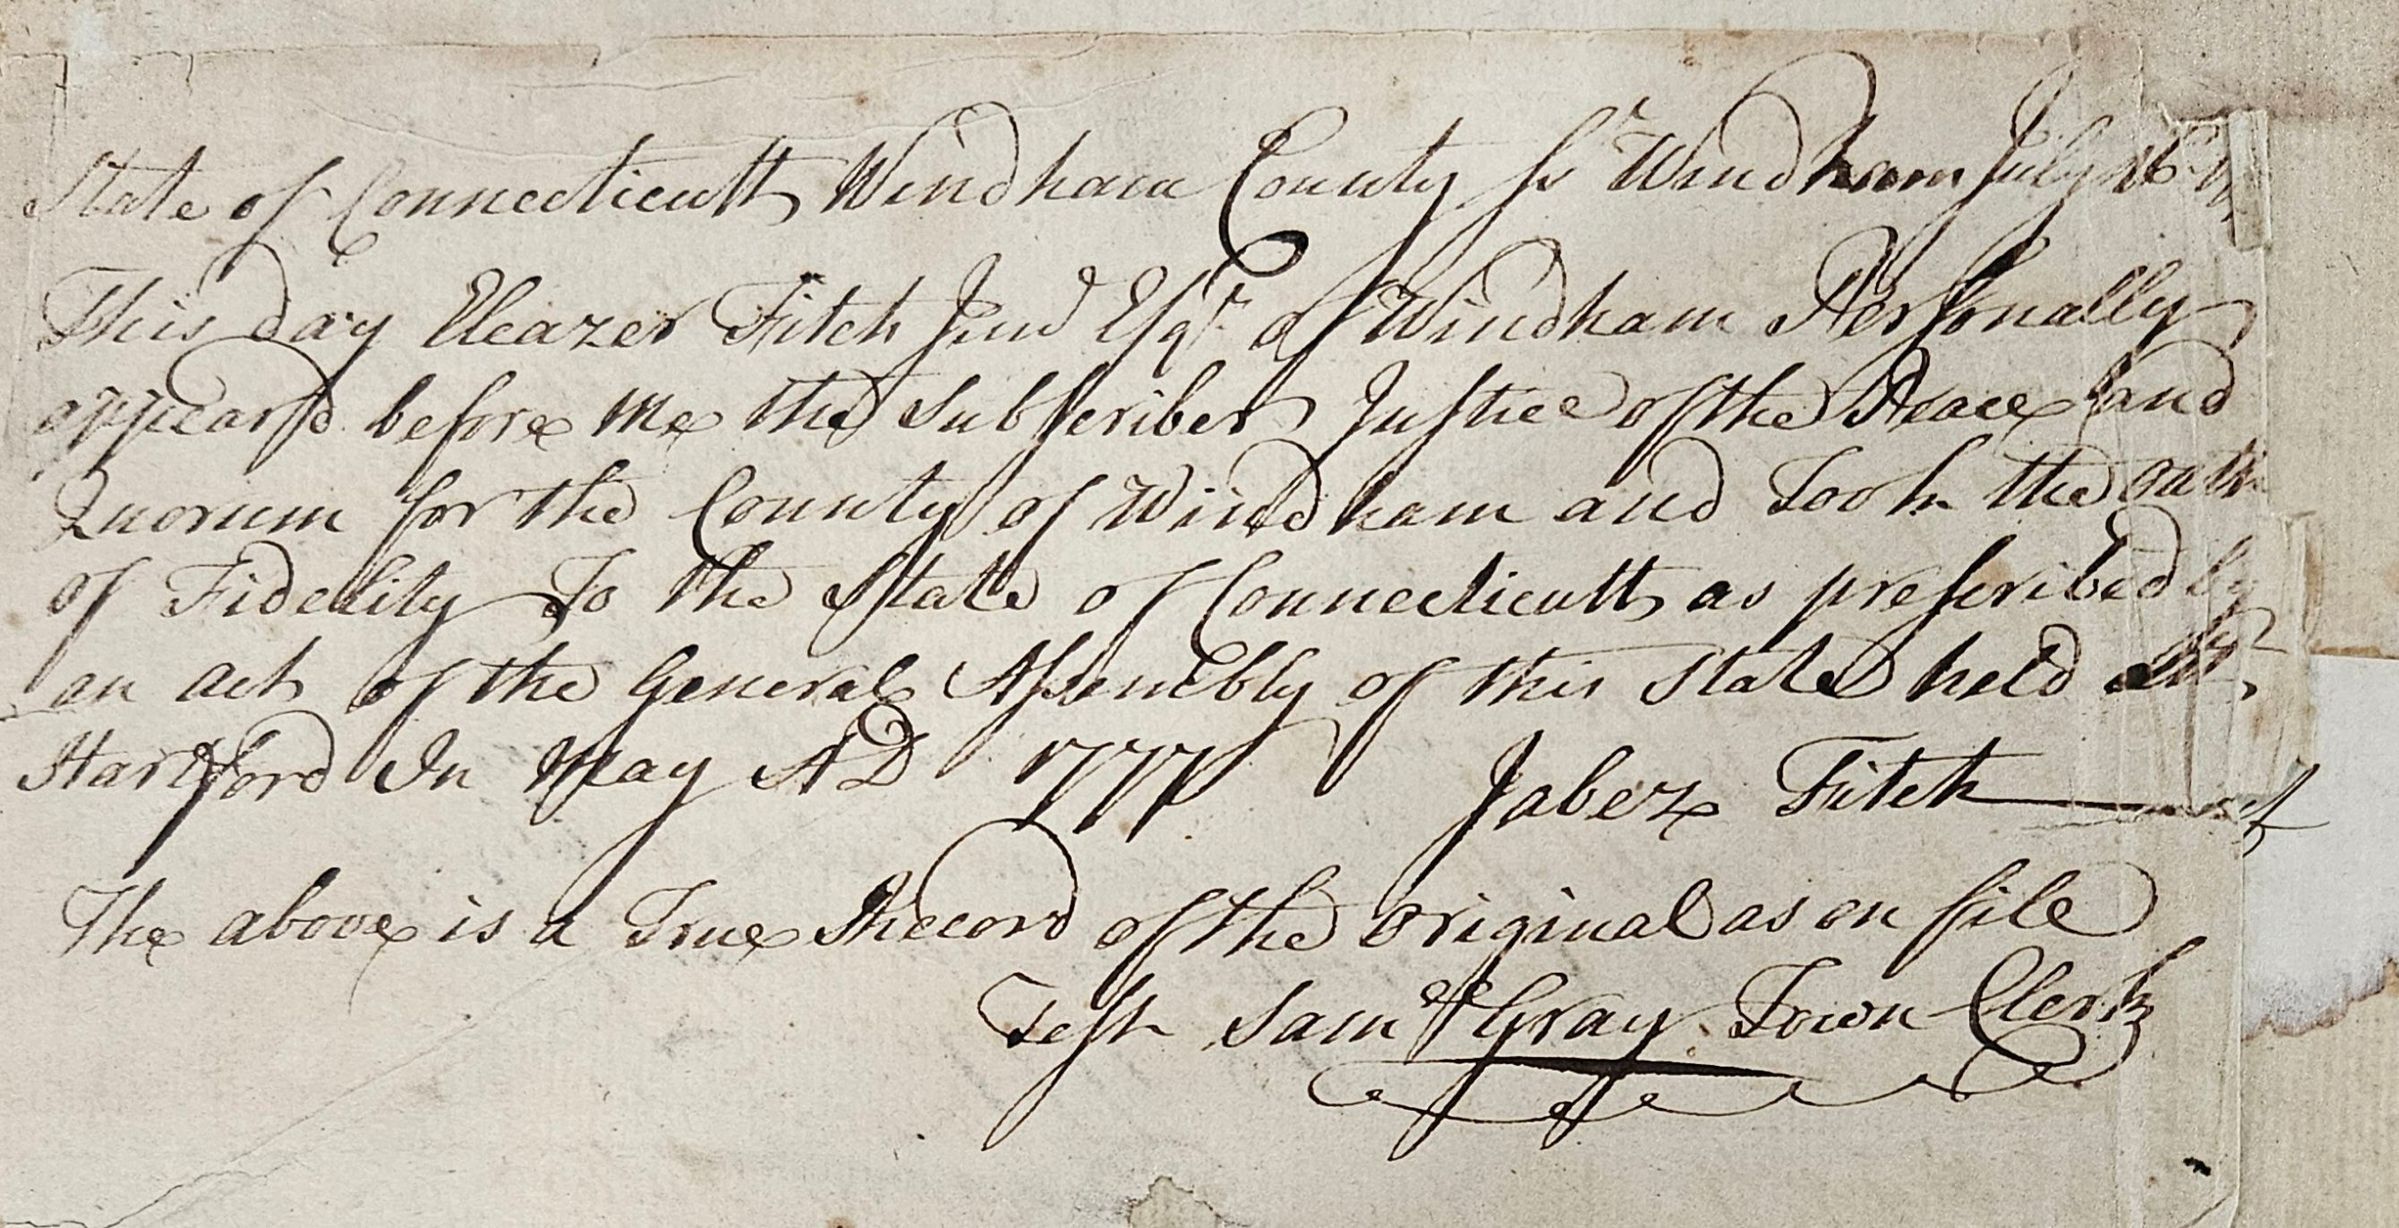 State of Connecticutt Windham County ss Windham July 16
This day Eleazer Fitch Junr Esqr of Windham Personally
appearsd before me the Subscriber Justice of the Peace and
Quorum for the County of Windham and Took the oath
of Fidelity To the State of Connecticutt as prescribed by
an act of the General Assembly of this State held att
Hartford In May AD 1777 Jabez Fitch
The above is a True Record of the original as on file
Test Samel Gray Town Clerk